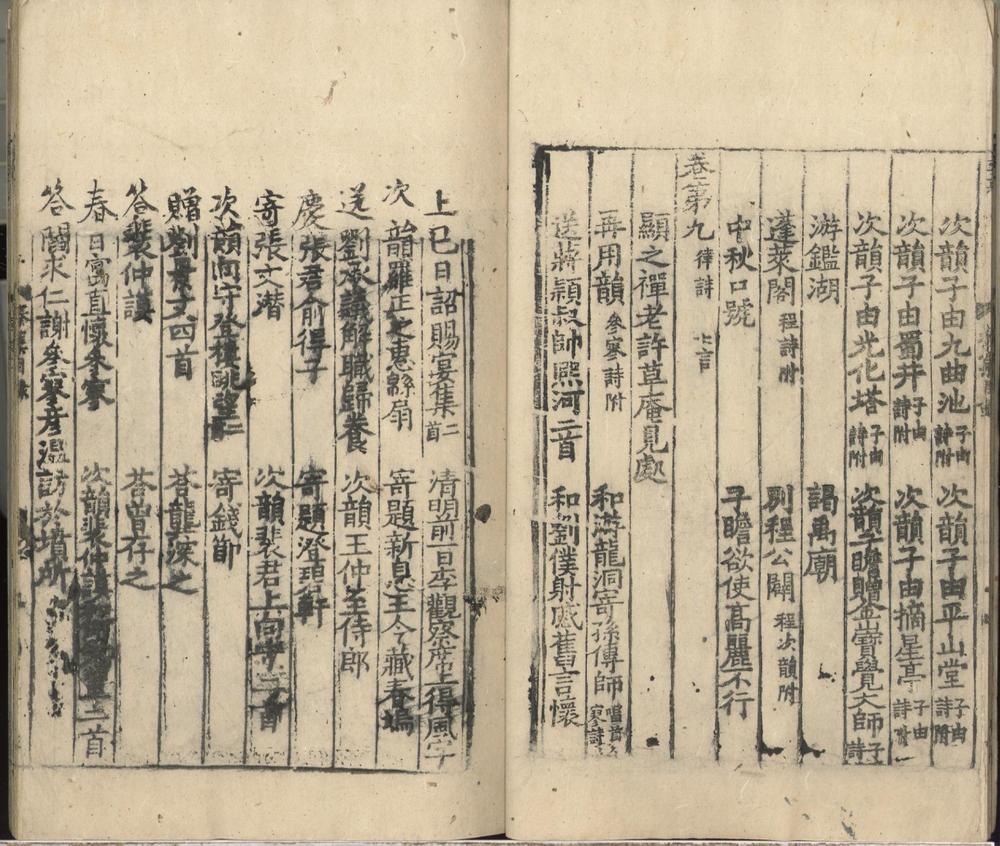 次韻子由九曲池 子由詩附 次韻子由平山堂 子由詩附
次韻子由蜀井 子由詩附 次韻子由摘星亭 子由詩附
次韻子由光化塔 子由詩附 次韻子瞻贈金山寶覺大師 子詩
游鑑湖 謁禹廟
蓬萊閣 程詩附 別程公闢 程次韻附
中秋口號 子瞻欲使高麗不行
卷第九 律詩 七言
顯之禪老許草庵見處
再用韻 參寥詩附 和游龍洞寄孫傳師
送蔣穎叔帥熙河二首 和劉僕射感舊言懷
上巳日詔賜宴集二首 清明前一日李觀察席上得風字
次韻羅正之惠綿扇 寄題新息王令藏春塢
送劉承議解職歸養 次韻王仲至侍郎
慶張君俞得子 寄題澄碧軒
寄張文潛 次韻裴君上向守二首
次韻向守登樓眺望二 寄錢節
贈劉景文四首 答龔深之
答裴仲謨 答曾存之
春日寓直懷參寥 次韻裴仲謨 二首
答閻求仁謝參寥彥溫訪於墳所